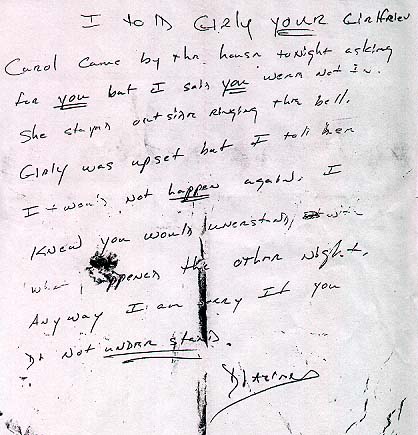 I told Girly your Girlfrien
Carol came by the house tonight asking
for you but I said you were not in.
She stayed outside ringing the bell.
Girly was upset but I told her
It would not happen again. I
Knew you would understand, with
what happened the other night.
Anyway I am very If you
Do Not understand.